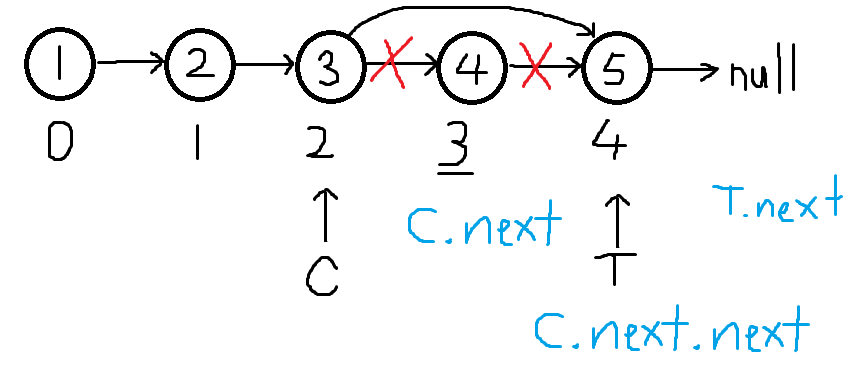 1 2 3 4 5 null
0 1 2 3 4
C.next T.next
C T
C.next.next